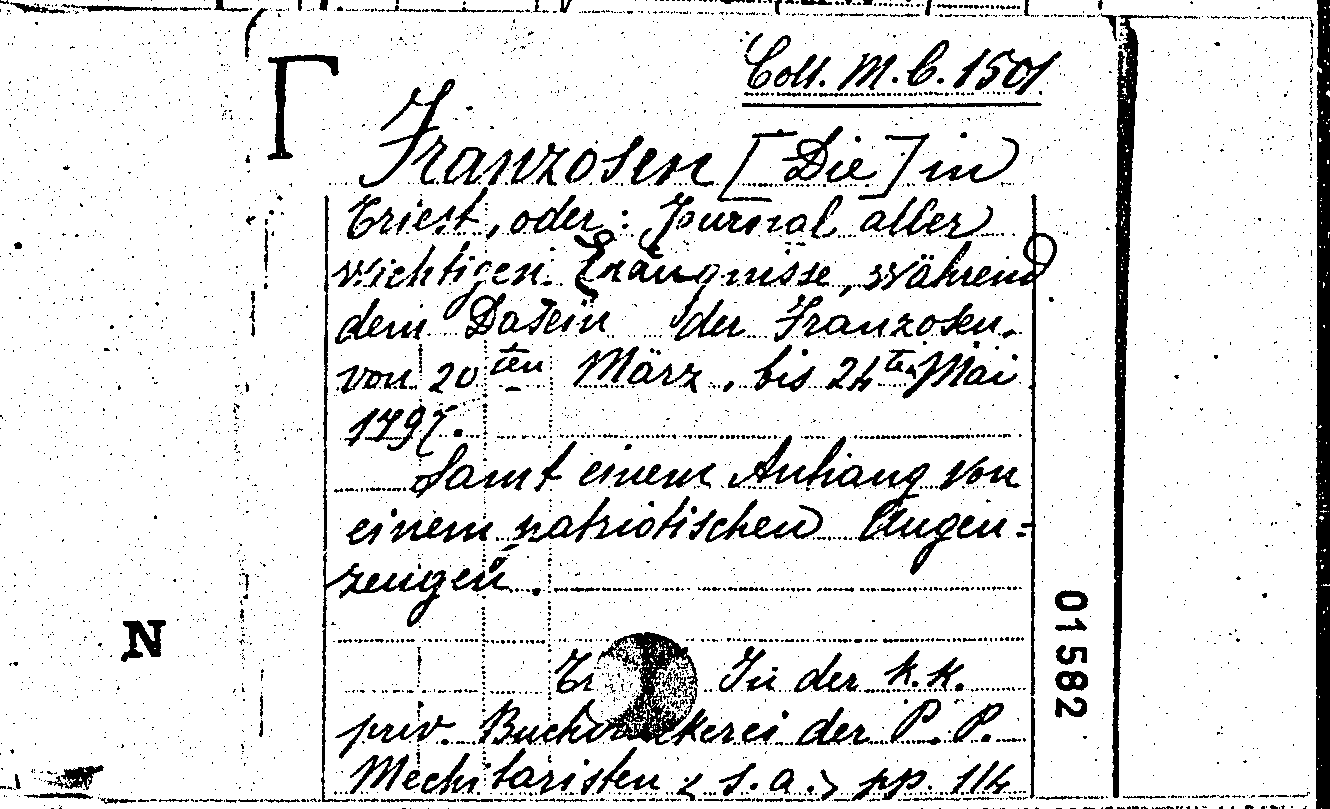 Coll. M. C. 1501
Franzosen [Die] in
Triest, oder: Journal aller
wichtigen Eräugnisse, während
dem Dasein der Franzosen.
von 20ten März, bis 24ten Mai
1797.
Samt einem Anhang von
einem patriotischen Augen=
zeugen.
Tr In der k.k.
priv. Buchdruckerei der P. P.
Mechitaristen < s. a. > pp. 114
N
01582